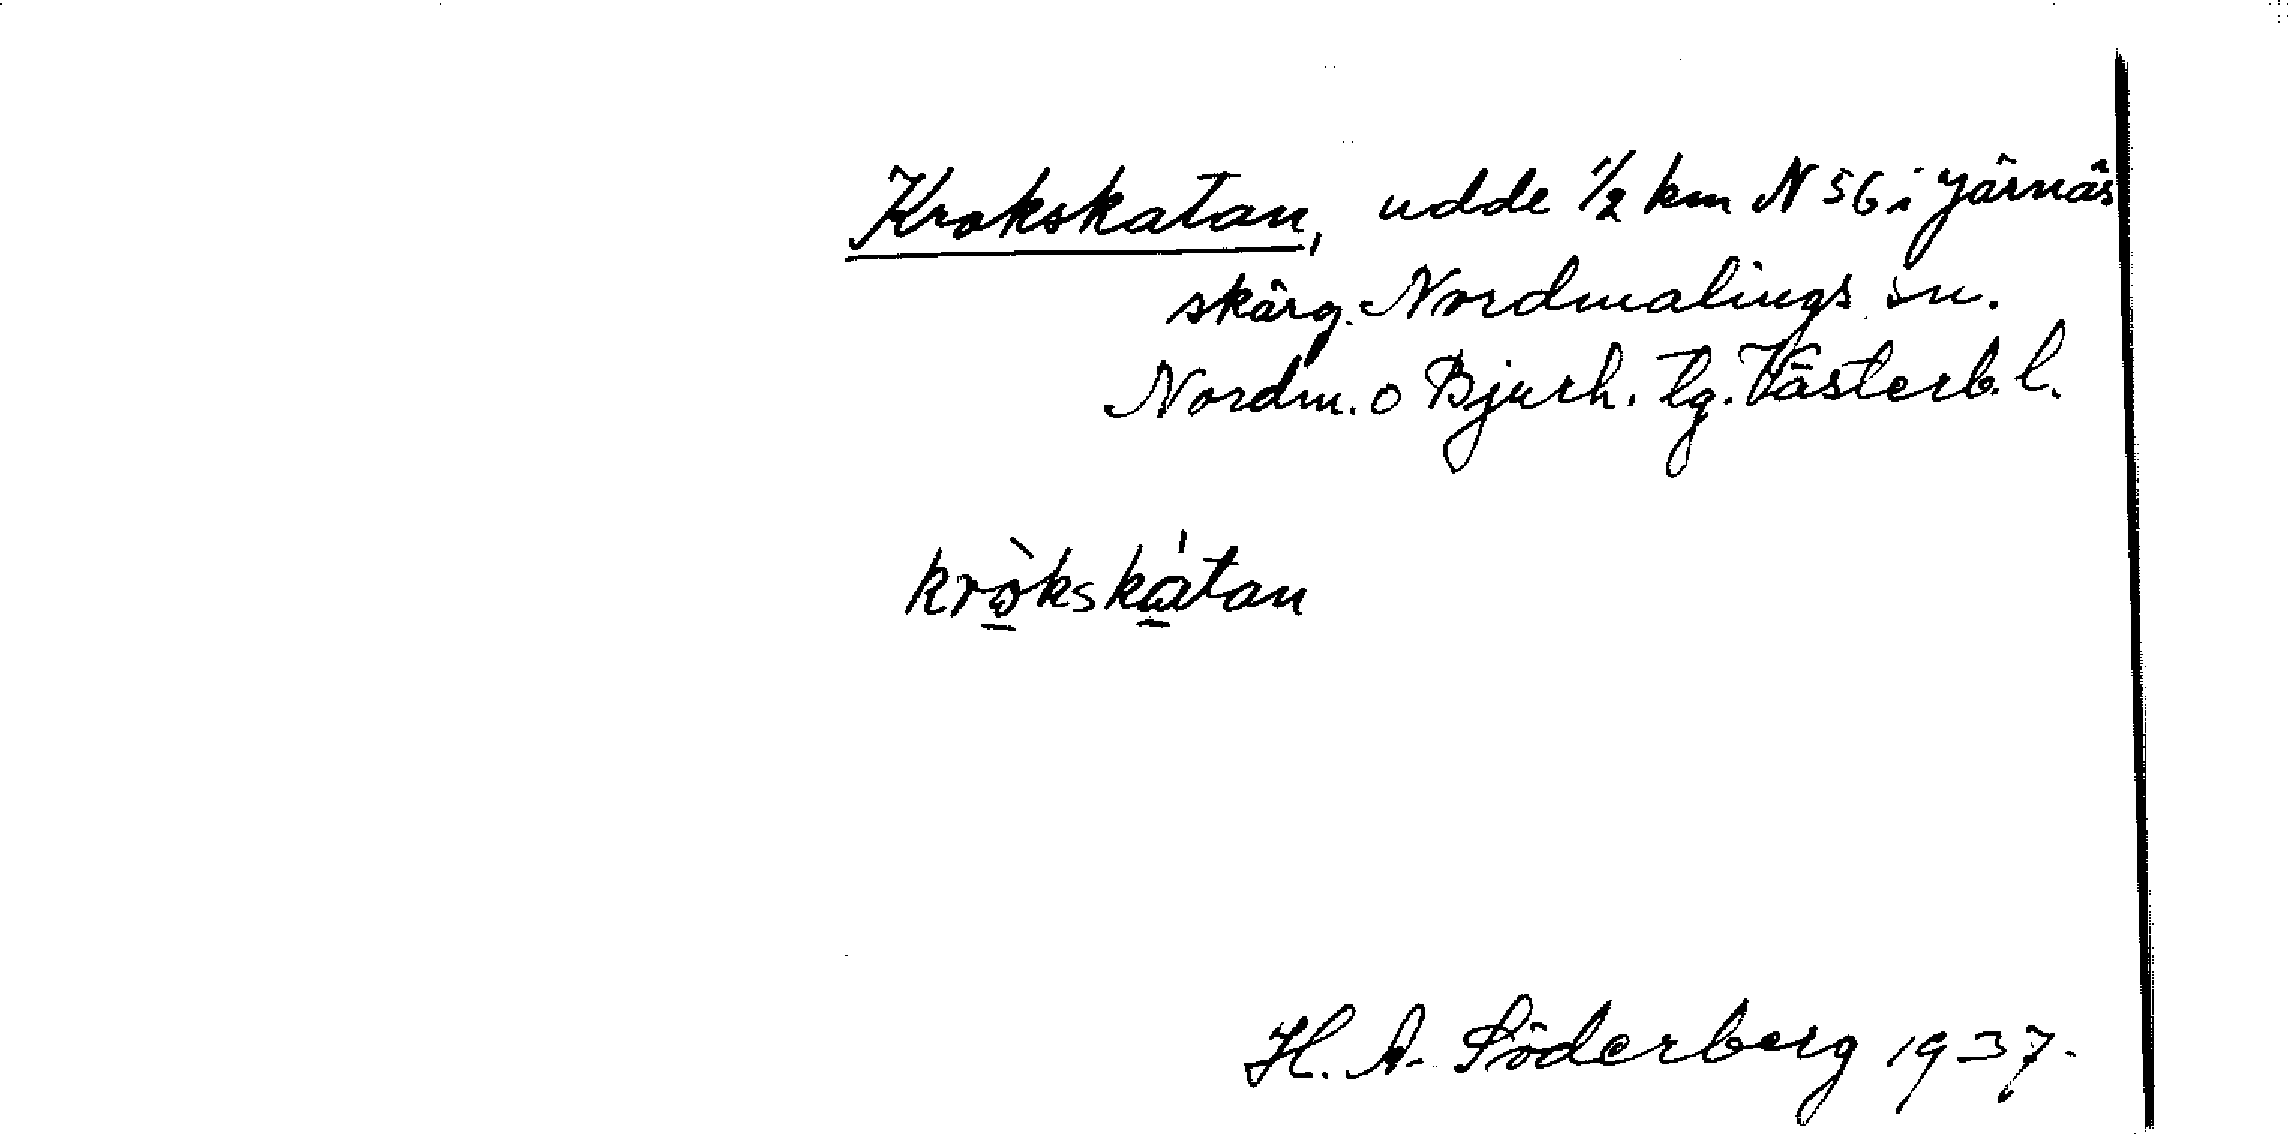 Krokskatan, udde 1/2 km N 56 i Järnäs
skärg. Nordmalings sn.
Nordm. o Bjurh. tg. Västerb. l.
kròkskátan
H. A. Söderberg 1937.